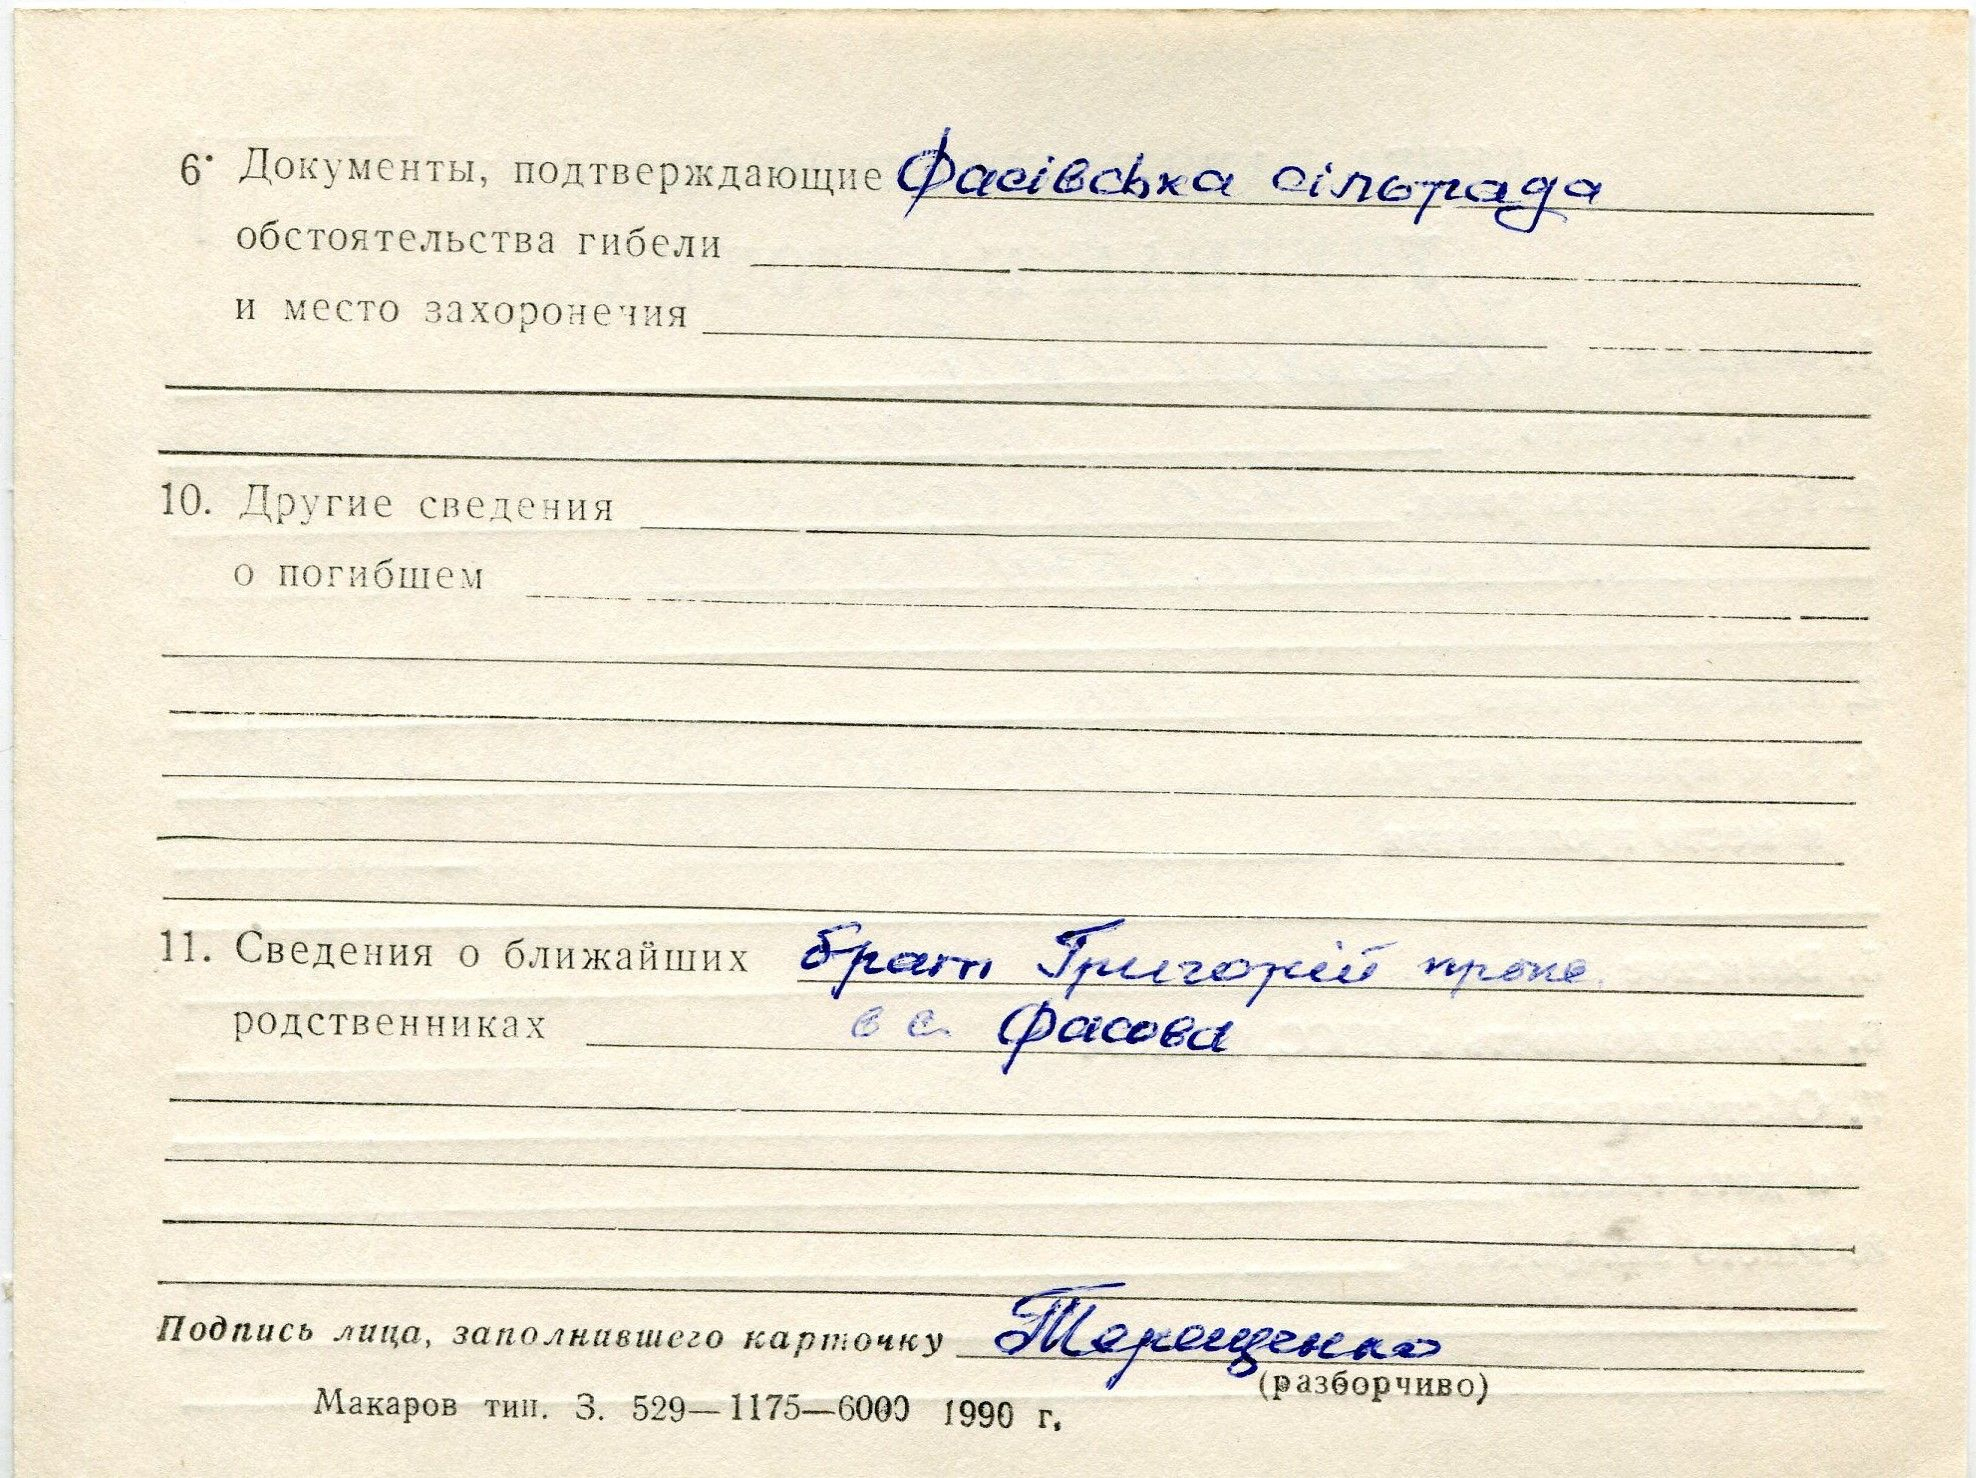 6. Документы, подтверждающие Фасівська сільрада
обстоятельства гибели
и место захоронения
10. Другие сведения
о погибшем
11. Сведения о ближайших брат Григорій прож.
родственниках в с. Фасова
Подпись лица, заполнившего карточку Терещенко
(разборчиво)
Макаров тип. З. 529—1175—6000 1990 г.